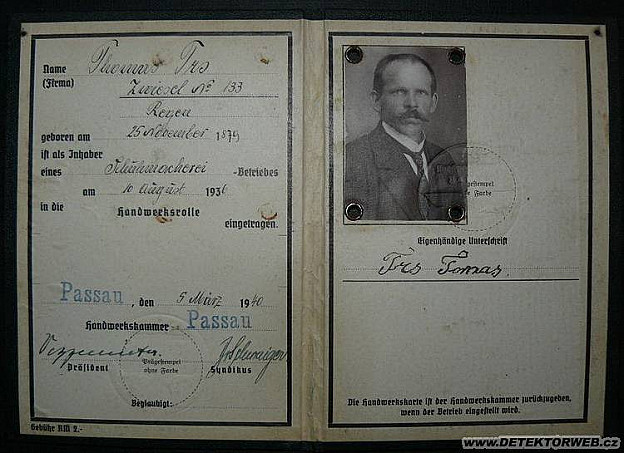 Name Thomas Trs
(Firma) Zwiesel No 133
Regen
geboren am 25 November 1879
ist als Inhaber
eines Schuhmacherei -Betriebes
am 10 August 1936
in die Handwerksrolle
eingetragen.
Passau, den 5 März 1940
Handwerkskammer Passau
Präsident
Prägestempel
ohne Farbe
Syndikus
Beglaubigt:
Gebühr RM 2.-
Prägestempel
ohne Farbe
Eigenhändige Unterschrift
Trs Tomas.
Die Handwerkskarte ist der Handwerkskammer zurückzugeben,
wenn der Betrieb eingestellt wird.
www.DETEKTORWEB.cz